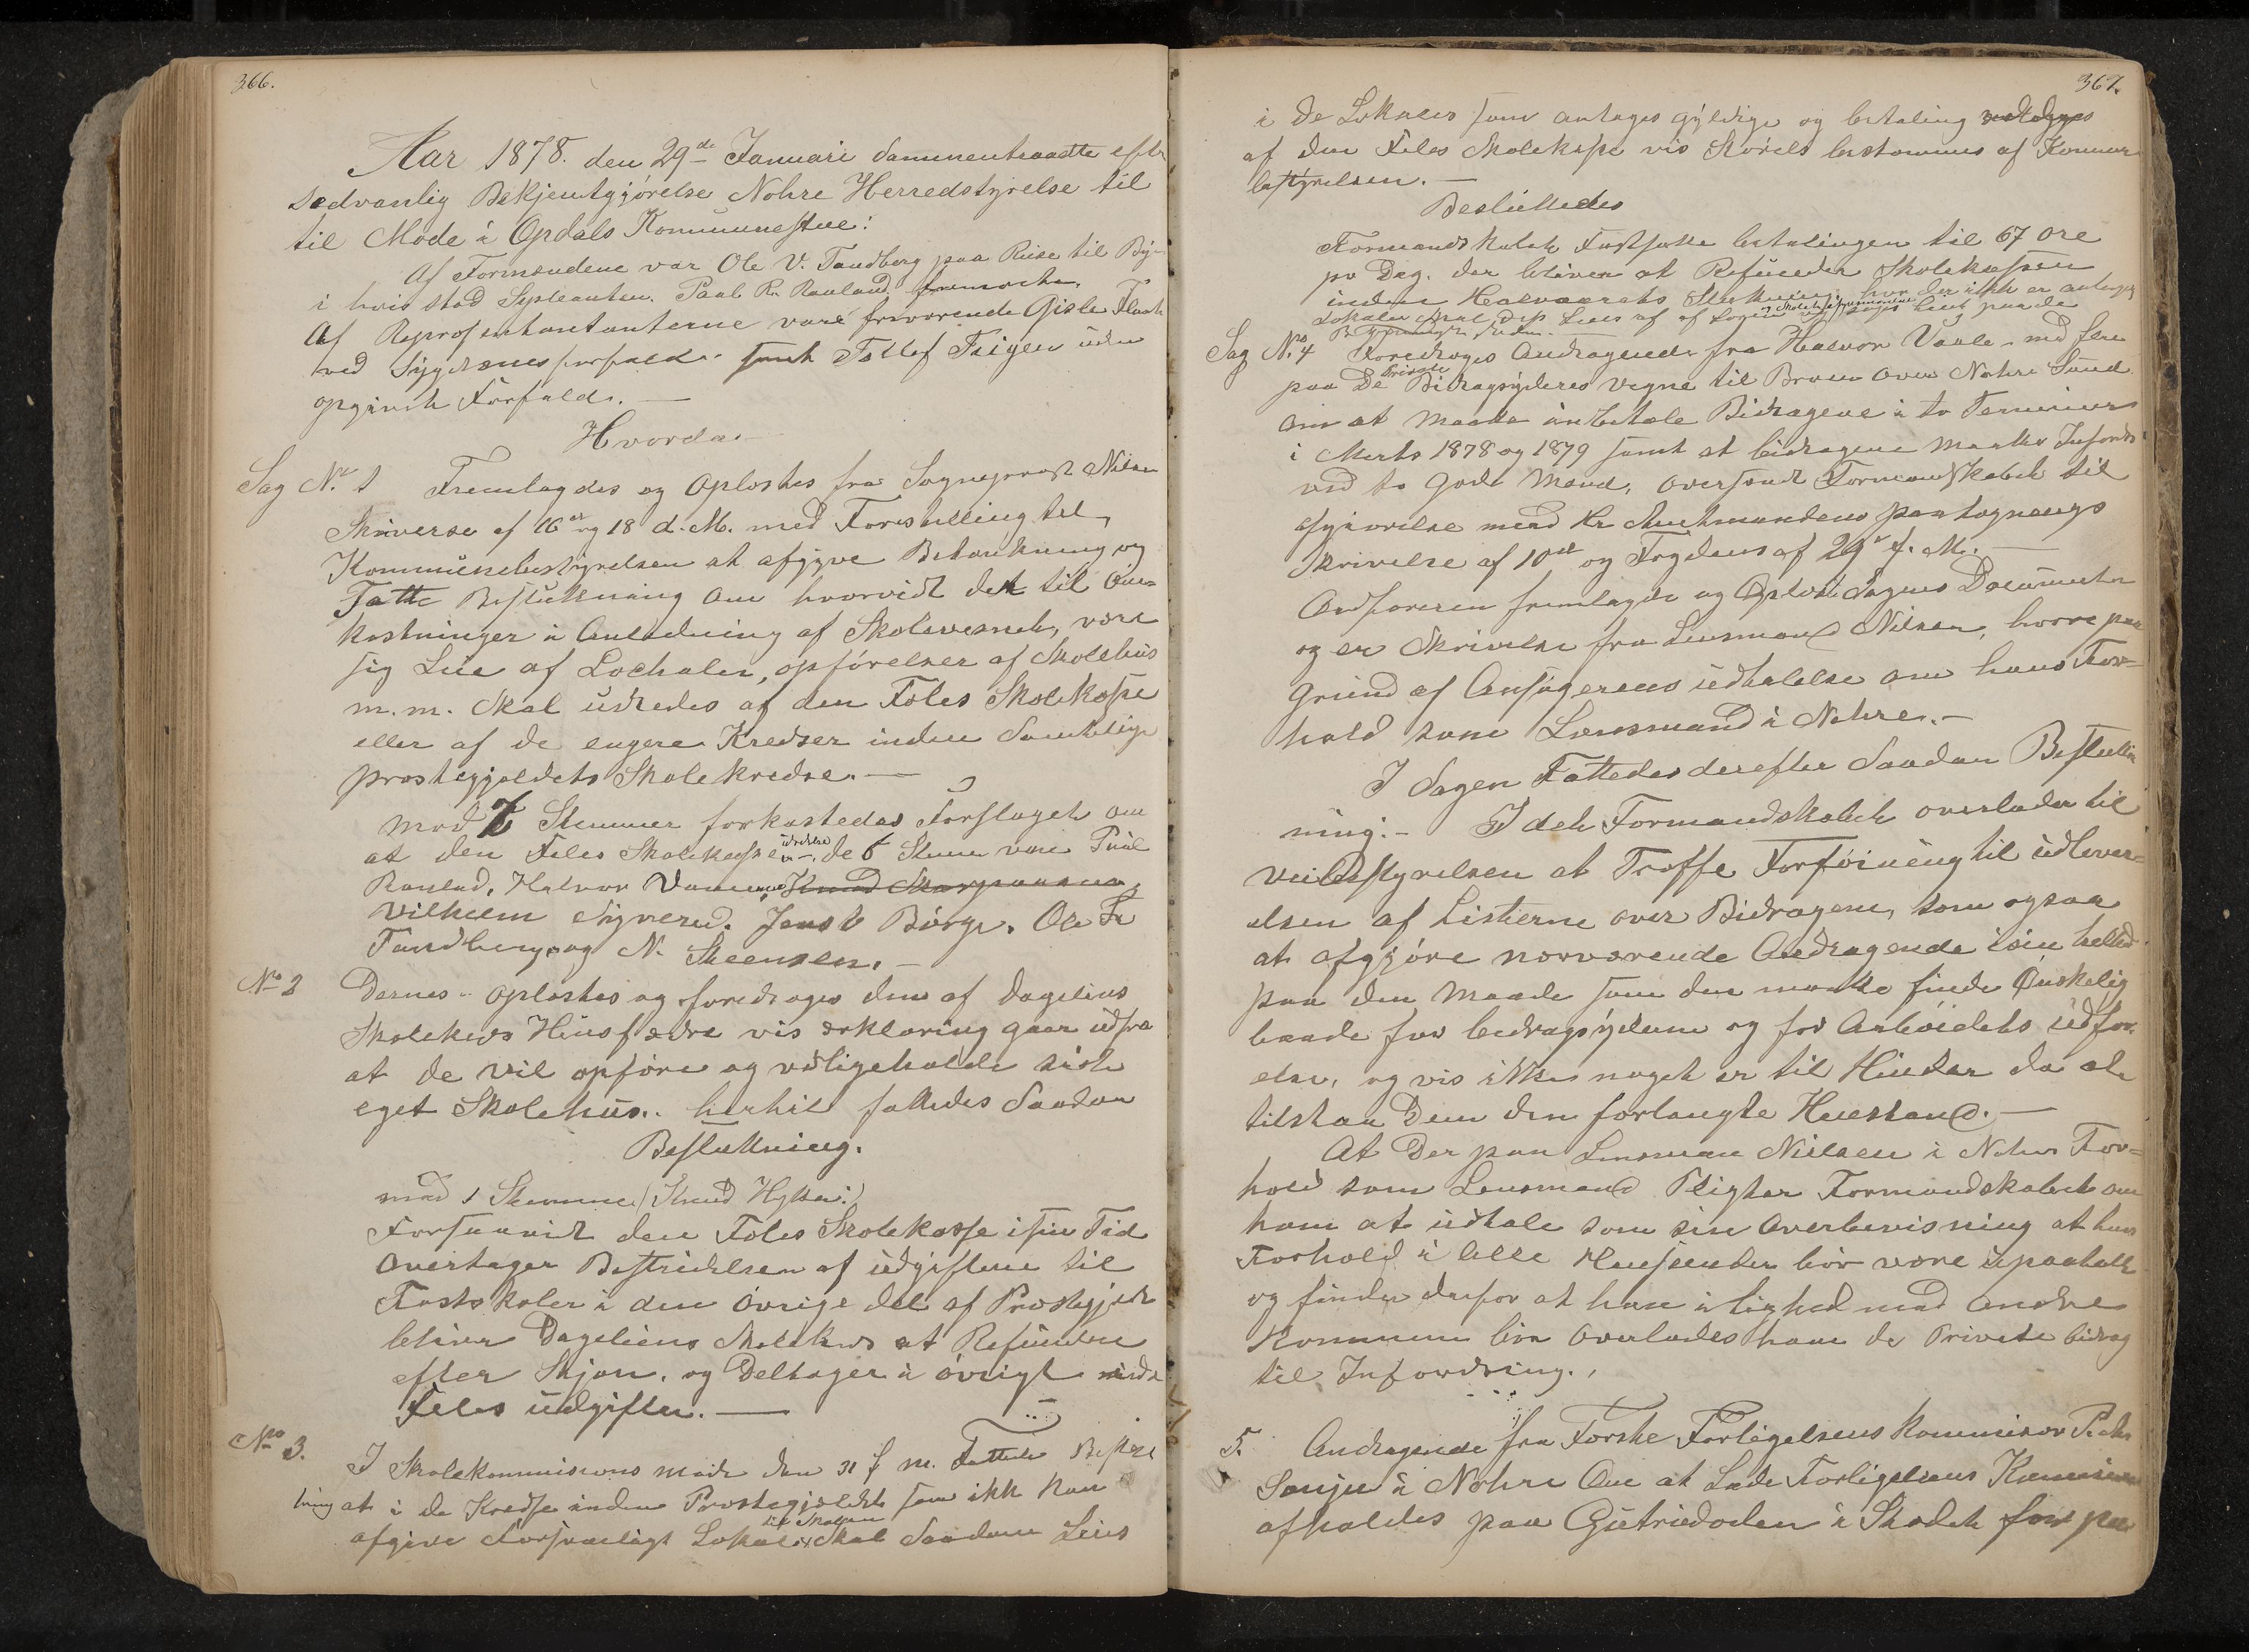 366.
Aar 1878. den 29de Januari Sammentraadte efter
sædvanlig Bekjentgjørelse Nohre Herredstyrelse til
til Møde i Opdals Kommunestue:
Af Formændene var Ole V. Tandberg paa Reise til
i hvis sted Supleanten. Paal Rr. Rauland. fremmødte.
Af Representantanterne vare fraværende Gisle
ved Sygdomsforfald. samt Tollef uden
opgivet Forfald. —
Hvorda. —
Sag No. 1 Fremlagdes og Oplæstes fra Sogneprest Nilsen
Skrivelse af 16de og 18 d.M. med Forestilling til
Kommunebestyrelsen at afgive Betænkning og
Fatte Beslutning Om hvorvidt det til Om-
kostninger i Anledning af Skolevæsnet, være
sig Leie af Lochaler, opførelser af Skolehus
m.m. Skal udredes af den Føles Skolekasse
eller af de engere Kredser inden Samtlige
præstegjældets Skolekredse. —
Mod 7 Stemmer forkastedes Forslaget om
at den Føles Skolekasse udrede de 6 Stemmer vare Paul
Rauland, Halvor
Vilhelm Jens Børge. Ole Fr
Tandberg, og N. Steensen. —
No 2 Dernest oplæstes og foredroges den af Dagelius
Skolekreds Husfædre vis ærklæring gaar ud fra
at de vil opføre og vedligeholde sit
eget Skolehus. hertil fattedes Saadan
Beslutning.
mod 1 Stemme (Knud
Forsaavidt den Føles Skolekasse i sin Tid
Overtager Bestridelsen af udgifterne til
Fastskoler i den Øvrige del af Præstegjeldet
bliver Dageliens Skolekreds at Refundere
efter Skjøn. og Deltager i øvrigt
Føles udgifter. —
No 3. I Skolekommisions møde den 31 f. m. Fattede Beslut
ning at i de Kredse inden Præstegjældet som ikke kan
til Skolen
afgive Forsvarligt Lokale Skal Saadan Leies
367.
i de Lokaler som antages gyldige og betaling
af den Føles Skolekasse vis Størels bestemmes af Kommune
bestyrelsen. —
Besluttedes
Formandskabet Fastsatte betalingen til 67 Øre
pr Dag. der bliver at Refundere Skolekassen
inden Herredets hvor der ikke er antaget
Lokaler skal
Sag No. 4 Foredroges Andragende fra Halvor Vaale med flere
private
paa De Bidragsyderes vegne til Broen Over Nohre Sund
om at maatte indbetale Bidragene i to Terminer
i Marts 1878 og 1879 samt at bidragene maatte Infordres
ved to gode Mænd, oversendt Formandskabet til
afgjørelse med Hr Amtmandens paategnings
Skrivelse af 10de og Fogdens af 29de f. M. —
Ordføreren fremlagde og Oplæst Sagens Documenter
og en Skrivelse fra Lensmand Nilsen, hvori paa
Grund af Ansøgerens udtalelse om hans For-
hold som Lensmand i Nohre. —
I Sagen Fattedes derefter Saadan Beslut
ning. — I det Formandskabet overlader til
Veibestyrelsen at Træffe Forføining til udlever-
elsen af Listerne over Bidragene, som ogsaa
at afgjøre nærværende Andragende i sin helhed
paa den Maade som den maatte finde Ønskelig
baade for bidragsyderne og for Arbeidets udfør-
else, og vis ikke noget er til Hinder da at
tilstaa Dem den forlangte Henstand. —
At Der paa Lensman Nielsen i Nohre For-
hold som Lensmand Pligter Formandskabet om
ham at udtale som sin Overbevisning at hans
Forhold i alle Henseender bør være upaatalt
og finder derfor at han i lighed med andre
Kommuner bør Overlades ham de Private bidrag
til Infordring.,
5. Andragende fra Første Forligelsens kommisær Peder
i Nohre Om at Lade Forligelsens Kommision
afholdes paa i Stedet for paa